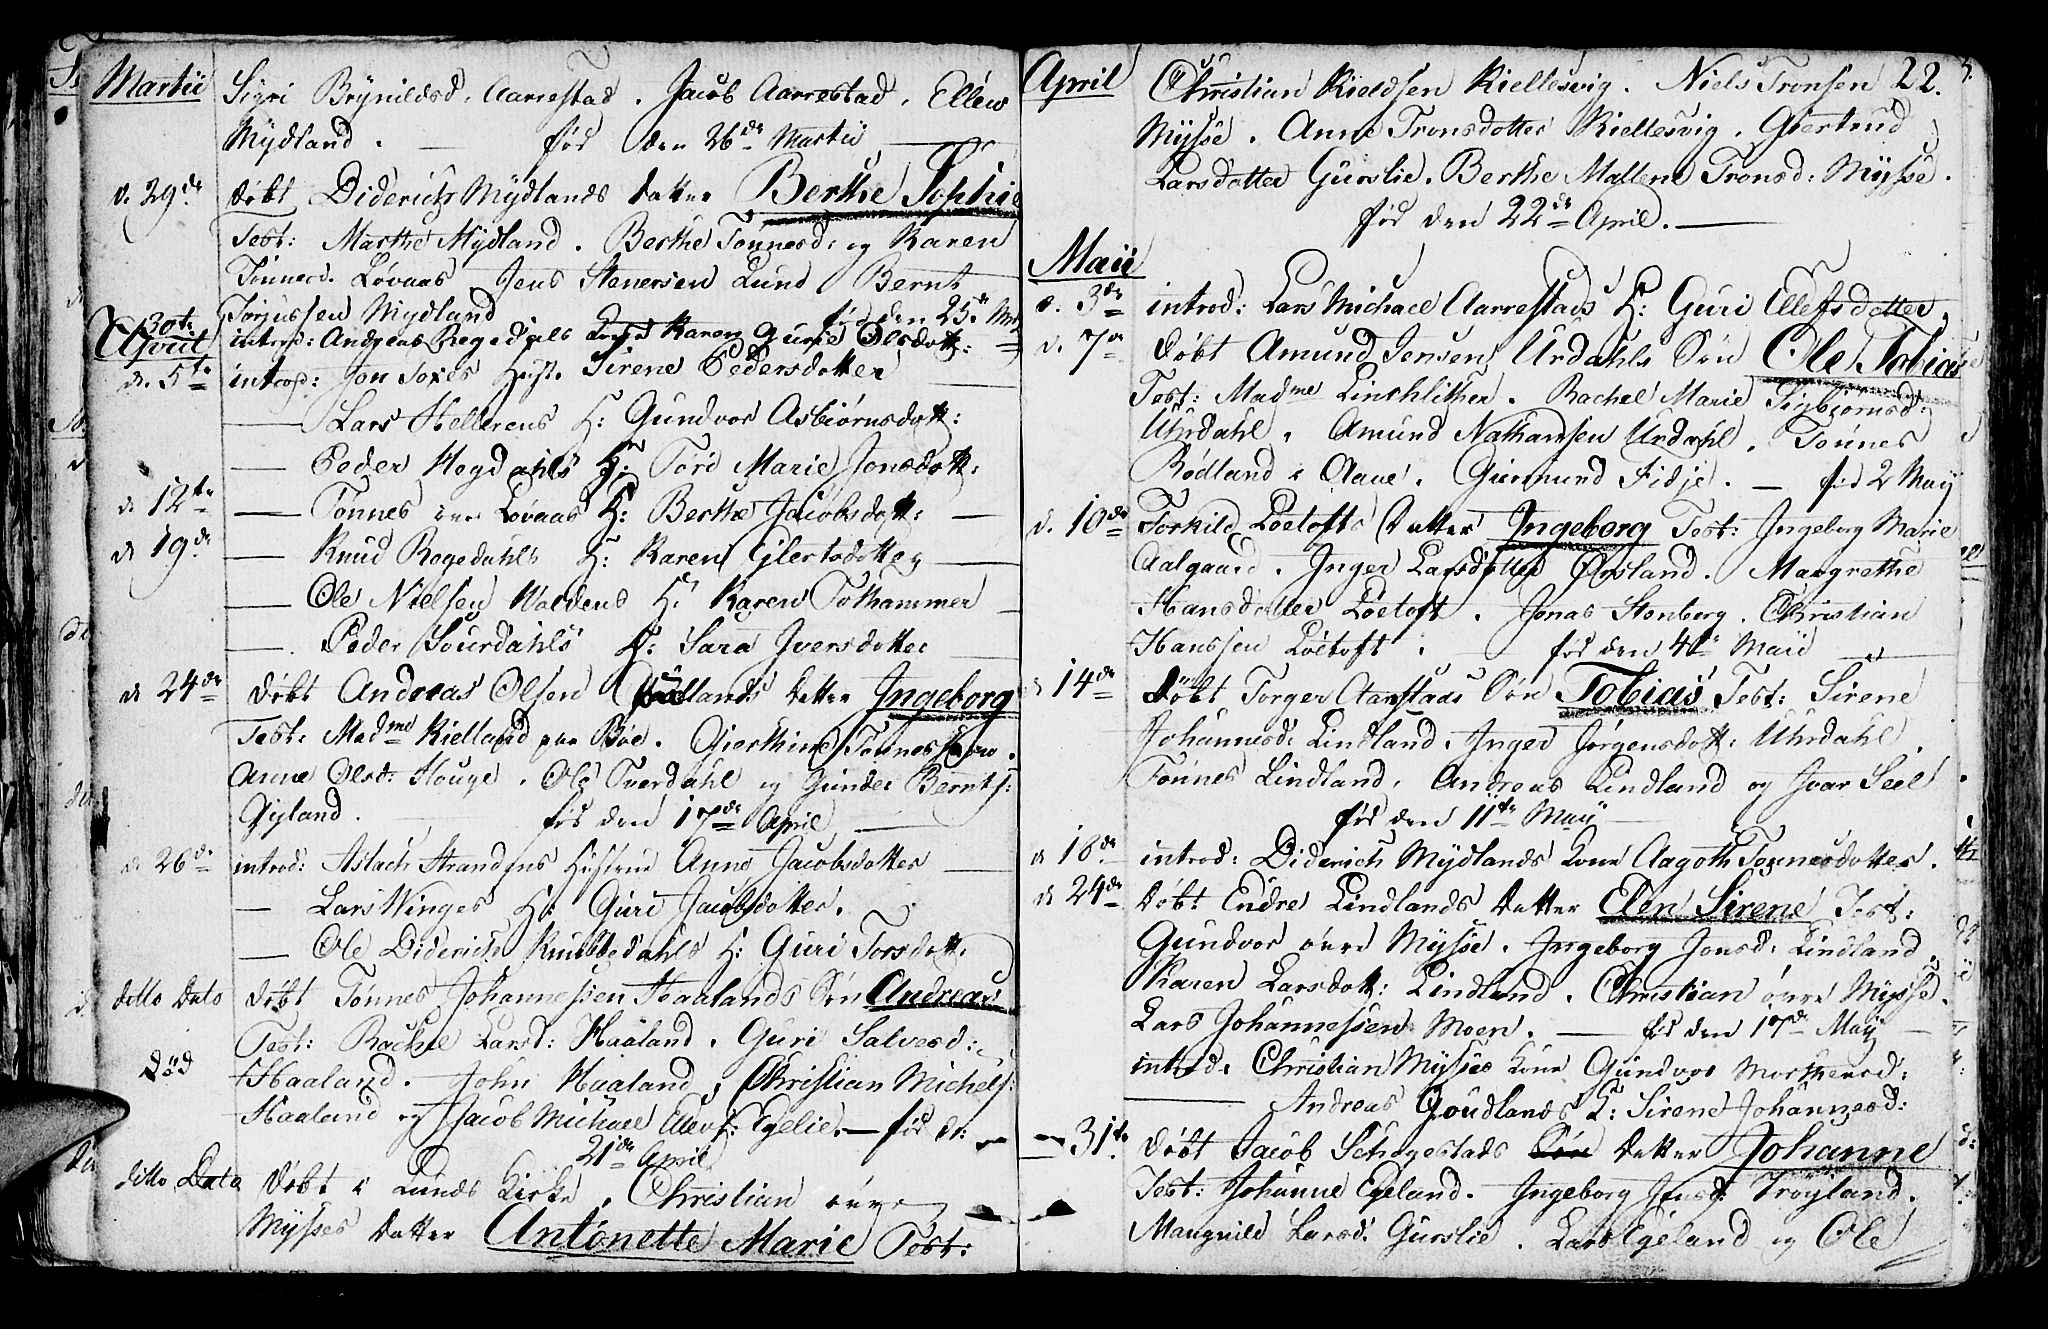 Martii
Sigri Brynildsd. Aarrestad. Jacob Aarrestad. Ellen
Mydland. — fød den 26de Martii
d. 29de døbt Diderich Mydlands datter Berthe Sophie
Test: Marthe Mydland. Berthe Tønnesd: og Karen
Tønnesd. Løvaas. Jens Stenersen Lund Bernt
Torjussen Mydland fød den 25de
30te introd: Andreas Regedahls Karen Gurie Olsdott:
April
d. 5te introd: Jon Hust. Sirene Pedersdotter
— Lars Hellerens H: Gundvor Asbiørnsdott:
— Peder Hegdahls H: Tori Marie Jonsdott:
d 12te — Tønnes Løvaas H: Berthe Jacobsdott: —
d 19de — Knud Regedahls H: Karen Eilertsdotter —
— Ole Nielsen H: Karen —
— Peder Sourdahls H: Sara Iversdotter —
d 24de døbt Andreas Olsen datter Ingeborg
Test: Madme Kielland paa Bøe. Tønnes
Anne Olsd: Houge. Ole Tverdahl og Gunder Bernts:
Gyland. — fød den 17de April —
d 26de introd: Aslach Strandens Hustrue Anne Jacobsdotter —
— Lars Winges H: Guri Jacobsdotter.
— Ole Diderich H: Guri Torsdott.
ditto Dato døbt Tønnes Johannessen Haalands Søn Andreas
Test: Rachel Larsd: Haaland. Guri Salvesd:
død
Haaland. John Haaland, Christian Michels:
Haaland og Jacob Michael Ellevs: Egelie. — fød d:
21de April
ditto Dato døbt i Lunds Kirke, Christian øvre
Mysses datter Antonette Marie Test:
April
Christian Kieldsen Kiellesvig. Niels Tronsen 22.
Mysse. Anne Tronsdotter Kiellesvig. Giertrud
Larsdotter Gurslie. Berthe Mallene Tronsd: Mysse.
fød den 22de April. —
Maii
d. 3de introd: Lars Michael Aarrestads H: Guri Ellefsdotter.
d. 7de døbt Amund Jensen Urdahls Søn Ole Tobias
Test: Madme. Rachel Marie Sigbiørnsd:
Uhrdahl. Amund Nathansen Urdahl. Tønnes
Rødland i Aaue. Giermund Fidje. — fød 2 May
d. 10de Torkild Loetofts datter Ingeborg Test: Ingeborg Marie
Aalgaard. Inger Larsdotter Ørsland. Margrethe
Hansdotter Loetoft. Jonas Stenberg. Christian
Hanssen Loetoft. fød den 4de Maii
14de døbt Torger Aarstads Søn Tobias Test: Sirene
Johannesd: Lindland. Inger Jørgensdott: Uhrdahl.
Tønnes Lindland. Andreas Lindland og Ivar Seel
fød den 11te May —
d 18de introd: Diderich Mydlands Kone Aagoth Tønnesdotter.
d 24de døbt Endre Lindlands datter Elen Sirene Test:
Gundvor øvre Mysse. Ingeborg Jonsd: Lindland
Karen Larsdott: Lindland. Christian øvre Mysse.
Lars Johannessen Moen. — fød den 17de May —
introd. Christian Mysses Kone Gundvor
— Andreas Goudlands K: Sirene Johannesd:
31te døbt Jacob Schogestads Søn datter Johanne
Test: Johanne Egeland. Ingeborg Jensd: Trøyland.
Mangnild Larsd: Gurslie. Lars Egeland og Ole